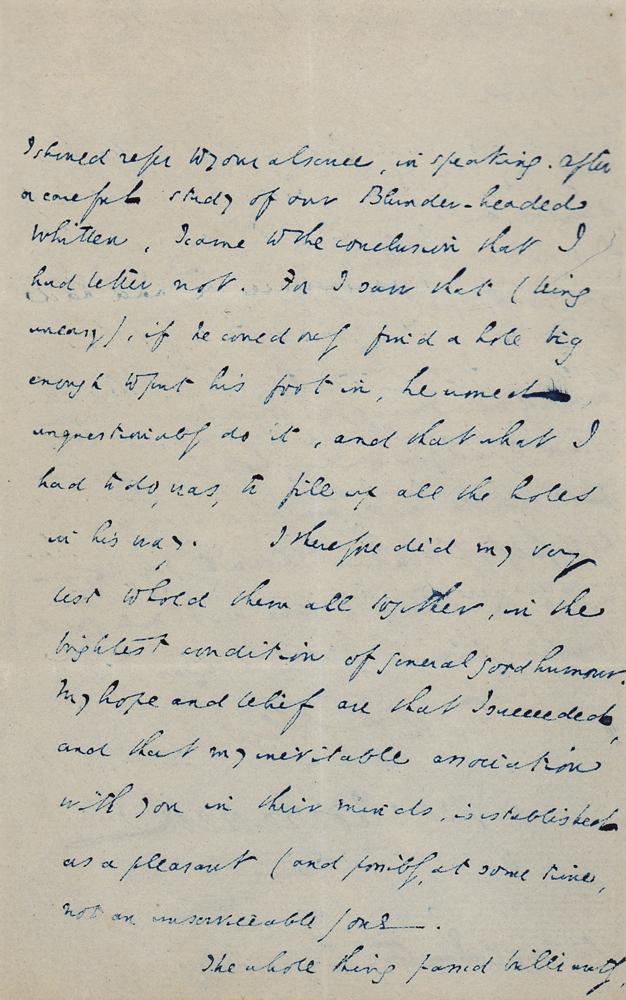 I should refer to your absence, in speaking. After
a careful study of our Blunder-headed
Whitten, I came to the conclusion that I
had better not. For I saw that (being
uneasy), if he could only find a hole big
enough to put his foot in, he would
unquestionably do it, and that what I
had to do, was, to fill up all the holes
in his way. I therefore did my very
best to hold them all together, in the
brightest condition of general good humour.
My hope and belief are that I succeeded,
and that my inevitable association
with you in their minds, is established
as a pleasant (and possibly, at some time,
not an unserviceable) one.
The whole thing passed brilliantly,